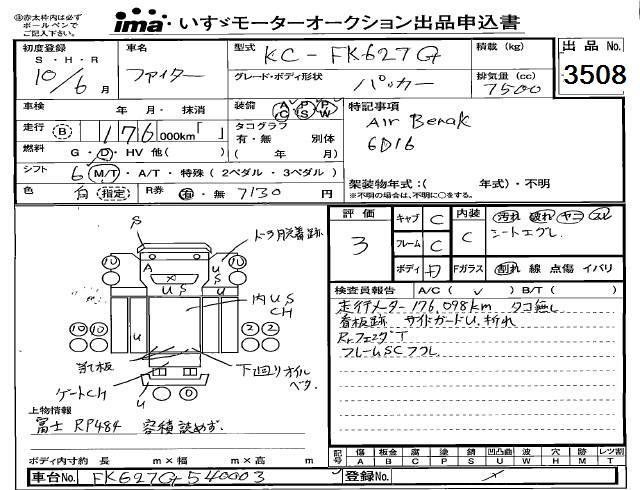 ⑪赤太枠内は必ずボールペンでご記入下さい。
ima いすゞモーターオークション出品申込書
初度登録 車名 型式 KC-FK627G 積載 (kg) 出品 No.
S・H・R 10/6月 ファイター グレード・ボディ形状 パッカー 排気量 (cc) 7500 3508
車検 年 月・ 抹消 装備 AC PS PW 特記事項
走行 B 176,000km「 」 タコグラフ 有・無 別体 Air Berak
燃料 G・D・HV 他( ) ( 年 月) 6D16
シフト 6 M/T・A/T・特殊 (2ペダル・3ペダル) 架装物年式:( 年式)・不明
色 白 (指定) R券 有・無 7130 円 ※不明の場合は、不明に○をする。
評価 3 キャブ C 内装 C 汚れ 破れ ヤニ スレ
フレーム C シートエグレ
ボディ Fガラス 割れ 線 点傷 イバリ
検査員報告 A/C( ✓ ) B/T( )
走行メーター176,098km タコ無し
看板跡 サイドガードU.折れ
RrフェンダーT
フレームSCフクレ
S
A
U S
U S
内U,S
CH
U
U
10 10
10 10 2 2
当て板
下廻りオイル
ゲートCH
U
上物情報
富士 RP484 容積読めず.
ボディ内寸約 長 m×幅 m×高 m
記号 傷 A 板金 B 腐 C 塗 P 錆 S 凹凸曲 U 穴 H 跡 M レツ割 T
車台No. FK627G-540003 登録No.